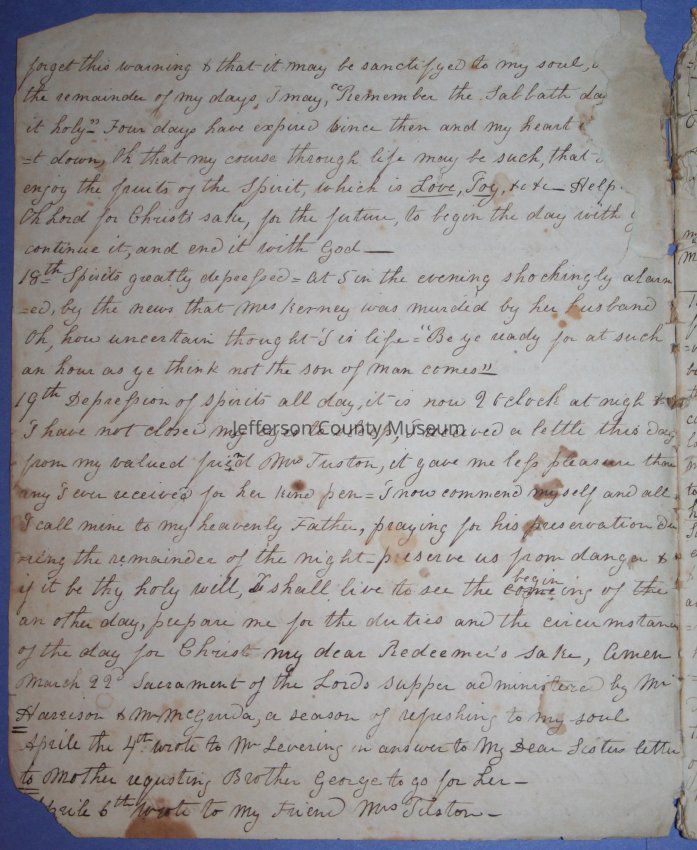 forget this warning & that it may be sanctifyed to my soul,
the remainder of my days, I may, "Remember the Sabbath day
it holy" Four days have expired since then and my heart
=t down, Oh that my course through life may be such, that I
enjoy the fruits of the Spirit, which is Love, Joy, &c&c — Help
Oh Lord for Christ's sake, for the future, to begin the day with
continue it, and end it with God —
18th Spirits greatly depressed = at 5 in the evening shockingly alarm
=ed, by the news that Mrs Kerney was murded by her husband
Oh, how uncertain thought I is life = "Be ye ready for at such
an hour as ye think not the son of man comes"
19th Depression of spirits all day, it is now 2 oclock at nigh &
I have not closed my eyes to sleep, I received a lette this day
from my valued frind Mrs Tuston, it gave me less pleasure than
any I ever received for her kind pen = I now commend myself and all
I call mine to my heavenly Father, praying for his preservation du
=ring the remainder of the night – preserve us from danger &
if it be thy holy will, I shall live to see the begining of the
an other day, prepare me for the duties and the circumstances
of the day for Christ my dear Redeemer's sake, Amen
March 22d Sacrament of the Lords supper administered by Mr
Harrison & Mr McGuida, a season of refushing to my soul
Aprile the 4th wrote to Mr Levering in answer to My Dear Sisters letter
to Mother requsting Brother George to go for her –
Aprile 6th wrote to my Friend Mrs Tuston –
Jefferson County Museum